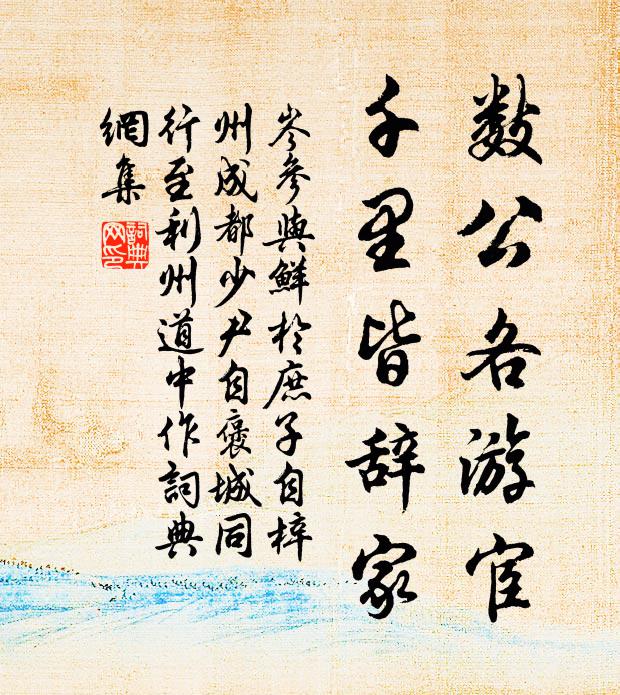 数公各游宦
千里皆辞家
岑参與鮮於庶子自梓
州成都少尹自褒城同
行至利州道中作詞典
網集
詞典
网印